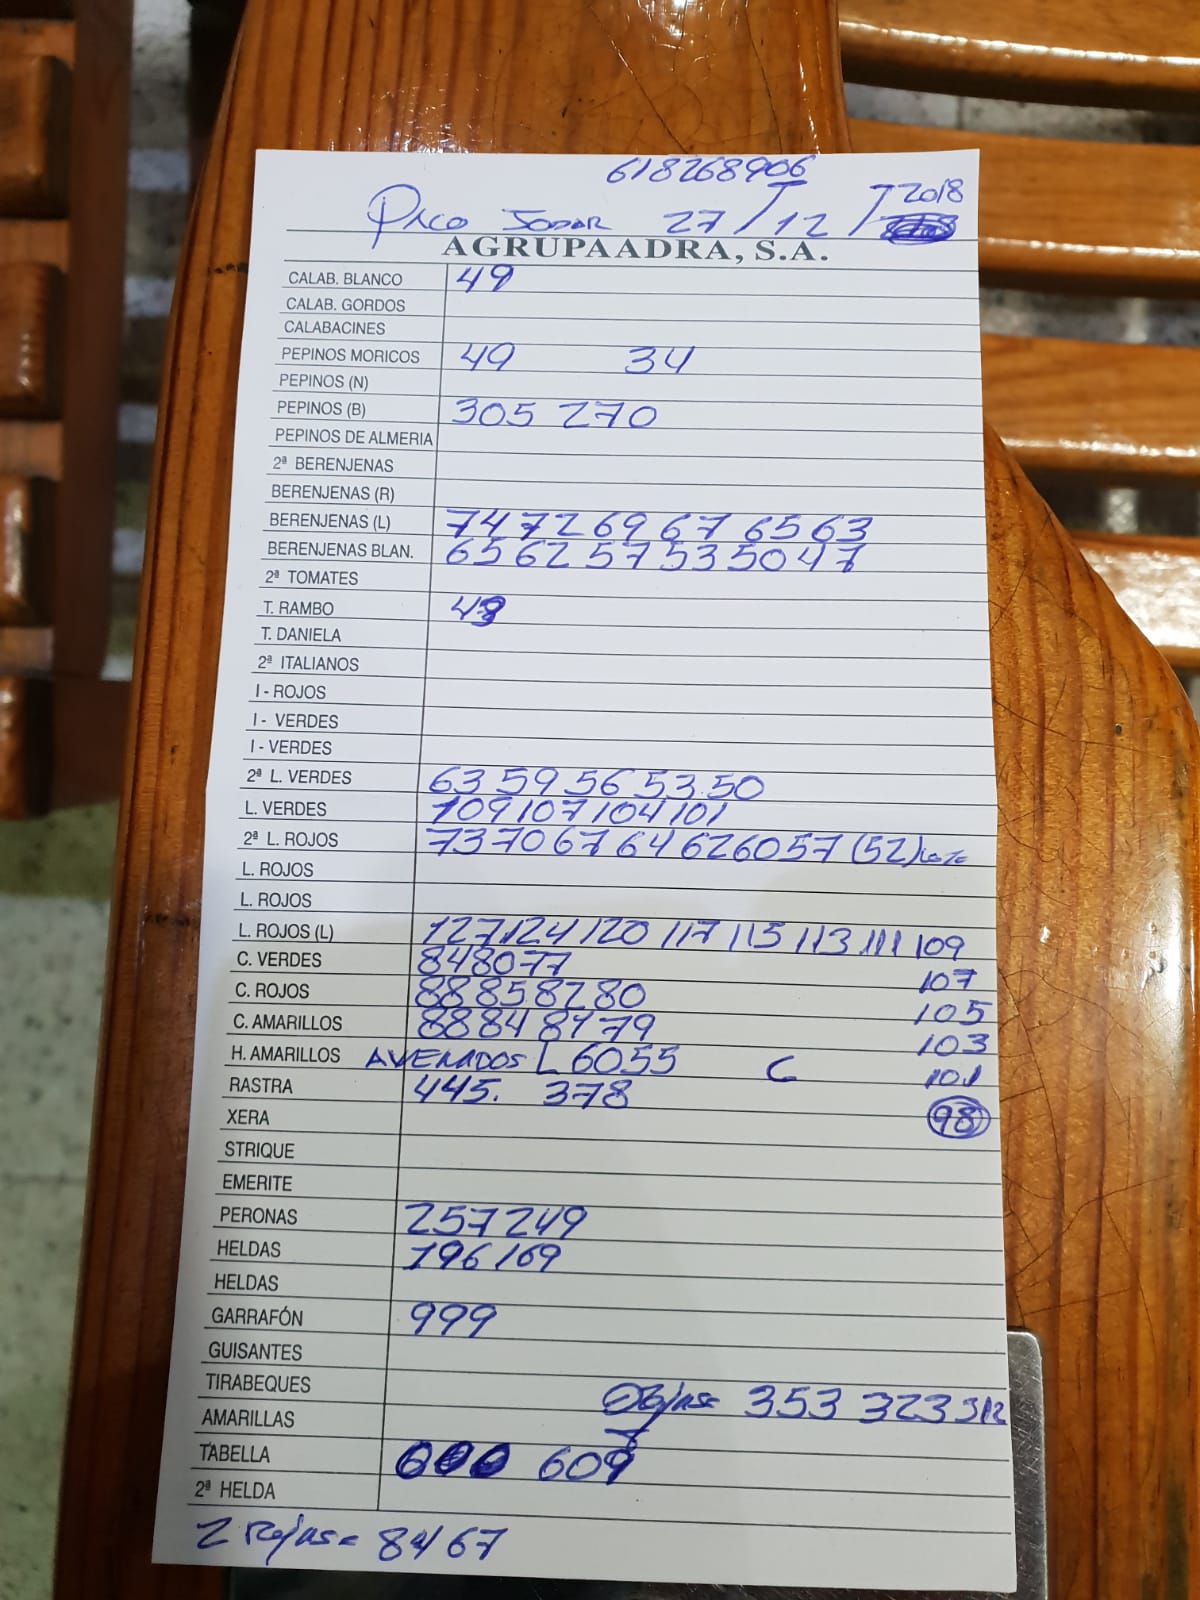 618268906
PACO JODAR 27/12/2018
AGRUPAADRA, S.A.
CALAB. BLANCO 49
CALAB. GORDOS
CALABACINES
PEPINOS MORICOS 49 34
PEPINOS (N)
PEPINOS (B) 305 270
PEPINOS DE ALMERIA
2ª BERENJENAS
BERENJENAS (R)
BERENJENAS (L) 74 72 69 67 65 63
BERENJENAS BLAN. 65 62 57 53 50 47
2ª TOMATES
T. RAMBO 48
T. DANIELA
2ª ITALIANOS
I - ROJOS
I - VERDES
I - VERDES
2ª L. VERDES 63 59 56 53.50
L. VERDES 109 107 104 101
2ª L. ROJOS 73 70 67 64 62 60 57 (52)
L. ROJOS
L. ROJOS
L. ROJOS (L) 127 124 120 117 115 113 111 109
C. VERDES 84 80 77 107
C. ROJOS 88 85 82 80 105
C. AMARILLOS 88 84 84 79 103
H. AMARILLOS AVERADOS L 60 55 C 101
RASTRA 445. 378 98
XERA
STRIQUE
EMERITE
PERONAS 257 249
HELDAS 196 169
HELDAS
GARRAFÓN 999
GUISANTES
TIRABEQUES 353 323 312
AMARILLAS
TABELLA 609
2ª HELDA
2 Rojas = 84 67